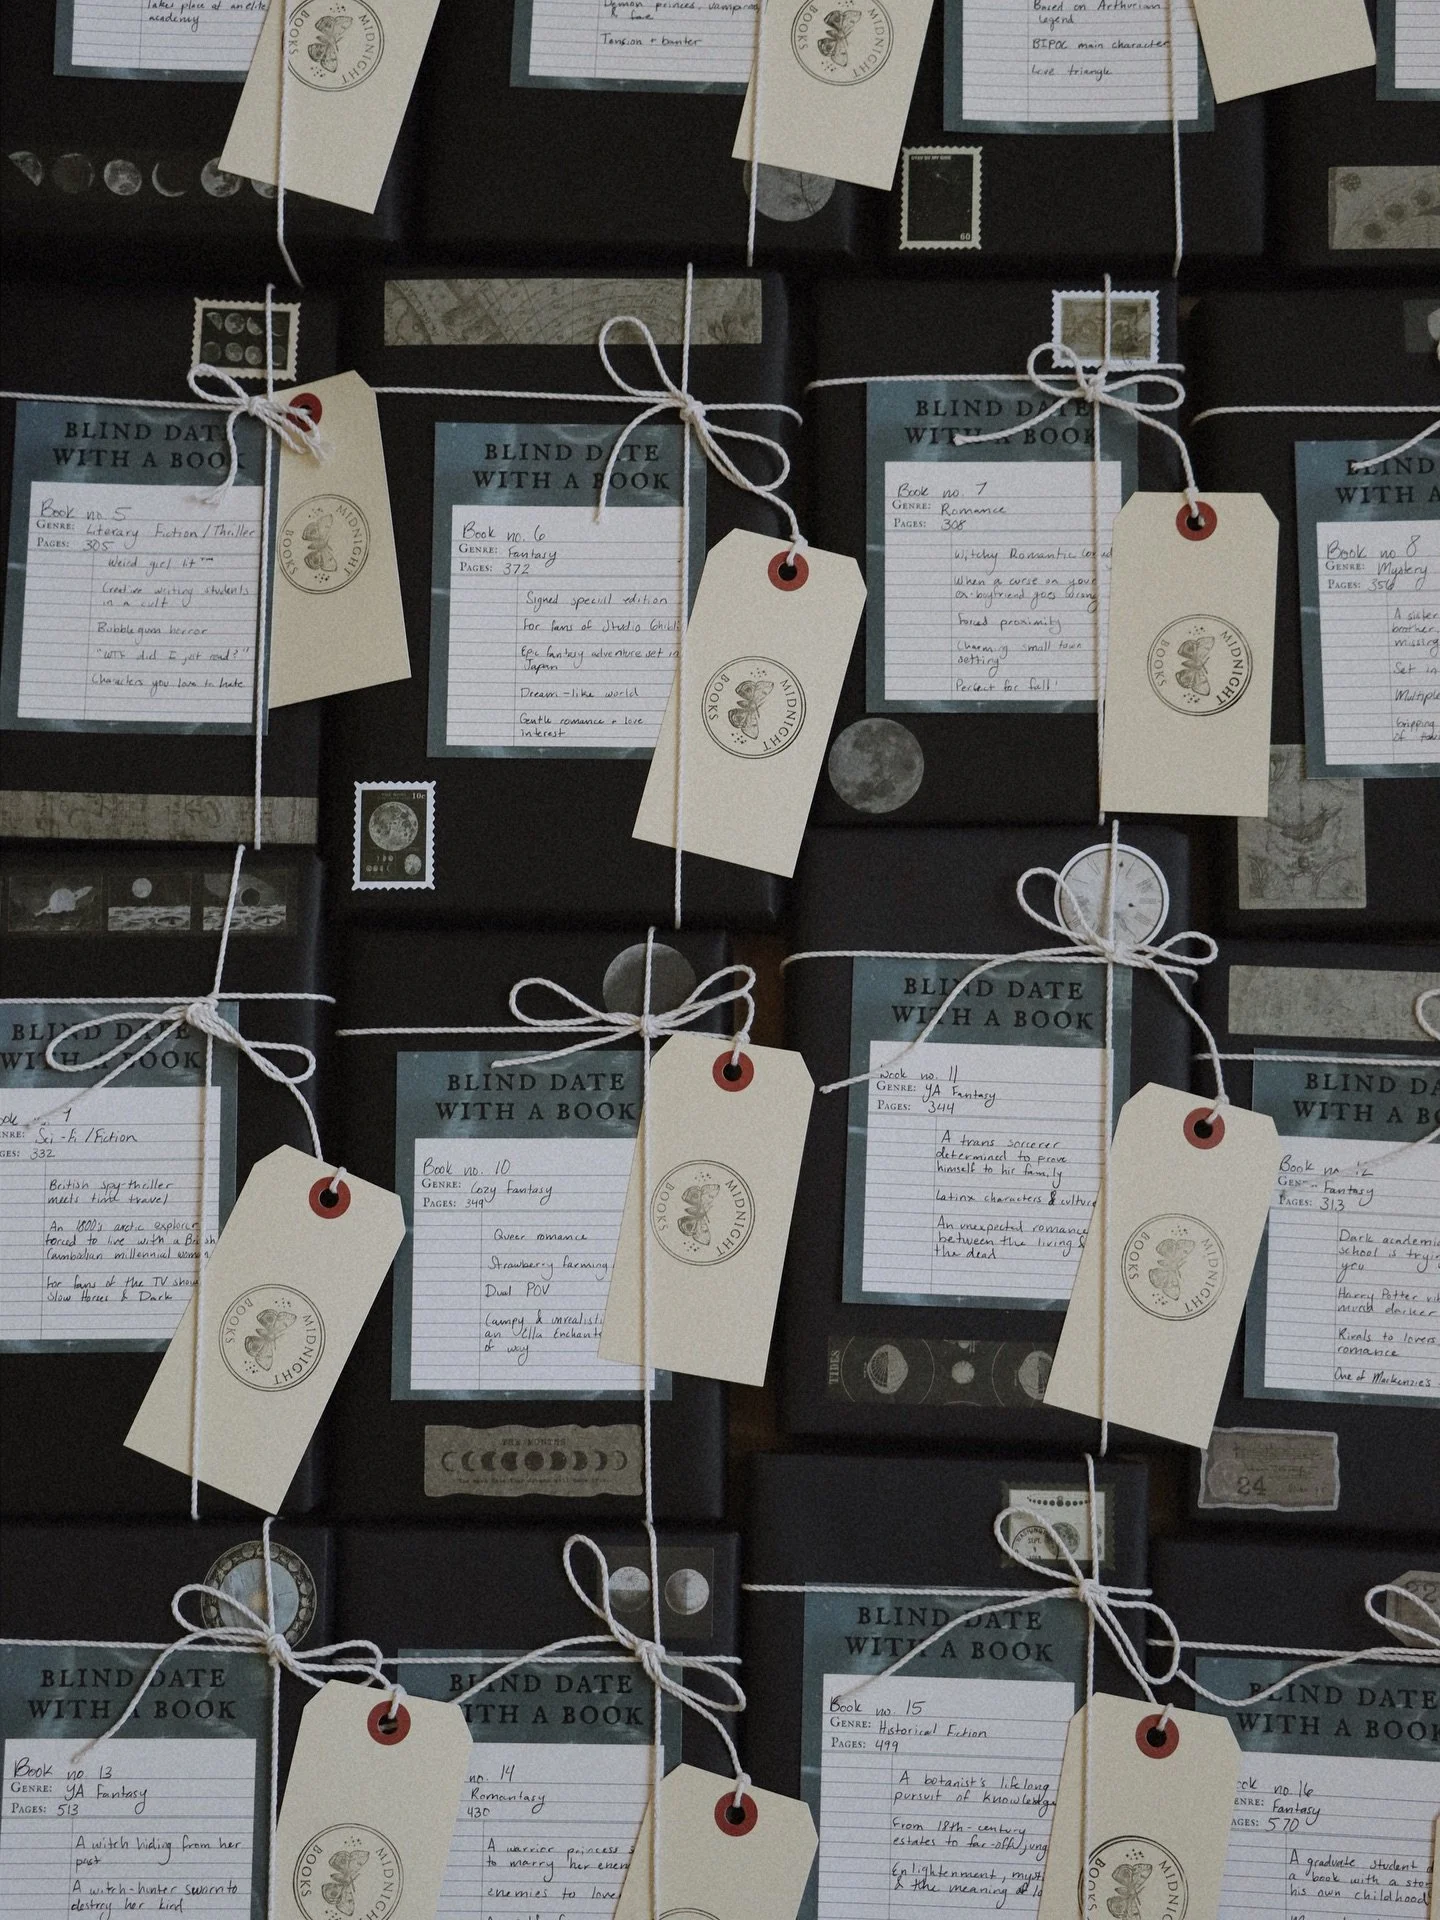 Takes place at an elite
academy
MIDNIGHT
BOOKS
Demon princes, vampires
& fae
Tension + banter
MIDNIGHT
BOOKS
Based on Arthurian
legend
BIPOC main character
Love triangle
60
BLIND DATE
WITH A BOOK
Book no. 5
GENRE: Literary Fiction / Thriller
PAGES: 305
Weird girl lit ™
Creative writing students
in a cult
Bubblegum horror
"WTF did I just read?"
Characters you love to hate
MIDNIGHT
BOOKS
BLIND DATE
WITH A BOOK
Book no. 6
GENRE: Fantasy
PAGES: 372
Signed special edition
For fans of Studio Ghibli
Epic fantasy adventure set in
Japan
Dream-like world
Gentle romance + love
interest
MIDNIGHT
BOOKS
10c
BLIND DATE
WITH A BOOK
Book no. 7
GENRE: Romance
PAGES: 308
Witchy Romantic
When a curse on your
ex-boyfriend goes wrong
Forced proximity
Charming small town
setting
Perfect for fall!
MIDNIGHT
BOOKS
BLIND D
WITH A
Book no 8
GENRE: Mystery
PAGES: 356
A sister
brother
missing
Set in
Multiple
Gripping
of
BLIND DATE
WITH A BOOK
GENRE: Sci-Fi / Fiction
PAGES: 332
British spy thriller
meets time travel
An 1800's arctic explorer
forced to live with a British
Cambodian millennial woman
For fans of the TV show
Slow Horses & Dark
MIDNIGHT
BOOKS
BLIND DATE
WITH A BOOK
Book no. 10
GENRE: Cozy Fantasy
PAGES: 349
Queer romance
Strawberry farming
Dual POV
Campy & unrealistic
an Ella Enchanted
of way
MIDNIGHT
BOOKS
BLIND DATE
WITH A BOOK
Book no. 11
GENRE: YA Fantasy
PAGES: 344
A trans sorcerer
determined to prove
himself to his family
Latinx characters & culture
An unexpected romance
between the living &
the dead
TIDES
MIDNIGHT
BOOKS
BLIND DATE
WITH A BO
Book no. 12
GENRE: Fantasy
PAGES: 313
Dark academia
school is trying
you
Harry Potter
much darker
Rivals to lovers
romance
One of Mackenzie's
24
BLIND DATE
WITH A BOOK
Book no. 13
GENRE: YA Fantasy
PAGES: 513
A witch hiding from her
past
A witch-hunter sworn to
destroy her kind
MIDNIGHT
BOOKS
BLIND DATE
WITH A BOOK
no. 14
Romantasy
430
A warrior princess
to marry her enemy
enemies to lovers
BLIND DATE
WITH A BOOK
Book no. 15
GENRE: Historical Fiction
PAGES: 499
A botanist's lifelong
pursuit of knowledge
From 18th-century
estates to far-off
Enlightenment,
& the meaning of
MIDNIGHT
BOOKS
BLIND DATE
WITH A BOOK
Book no. 16
GENRE: Fantasy
PAGES: 570
A graduate student
a book with a
his own childhood